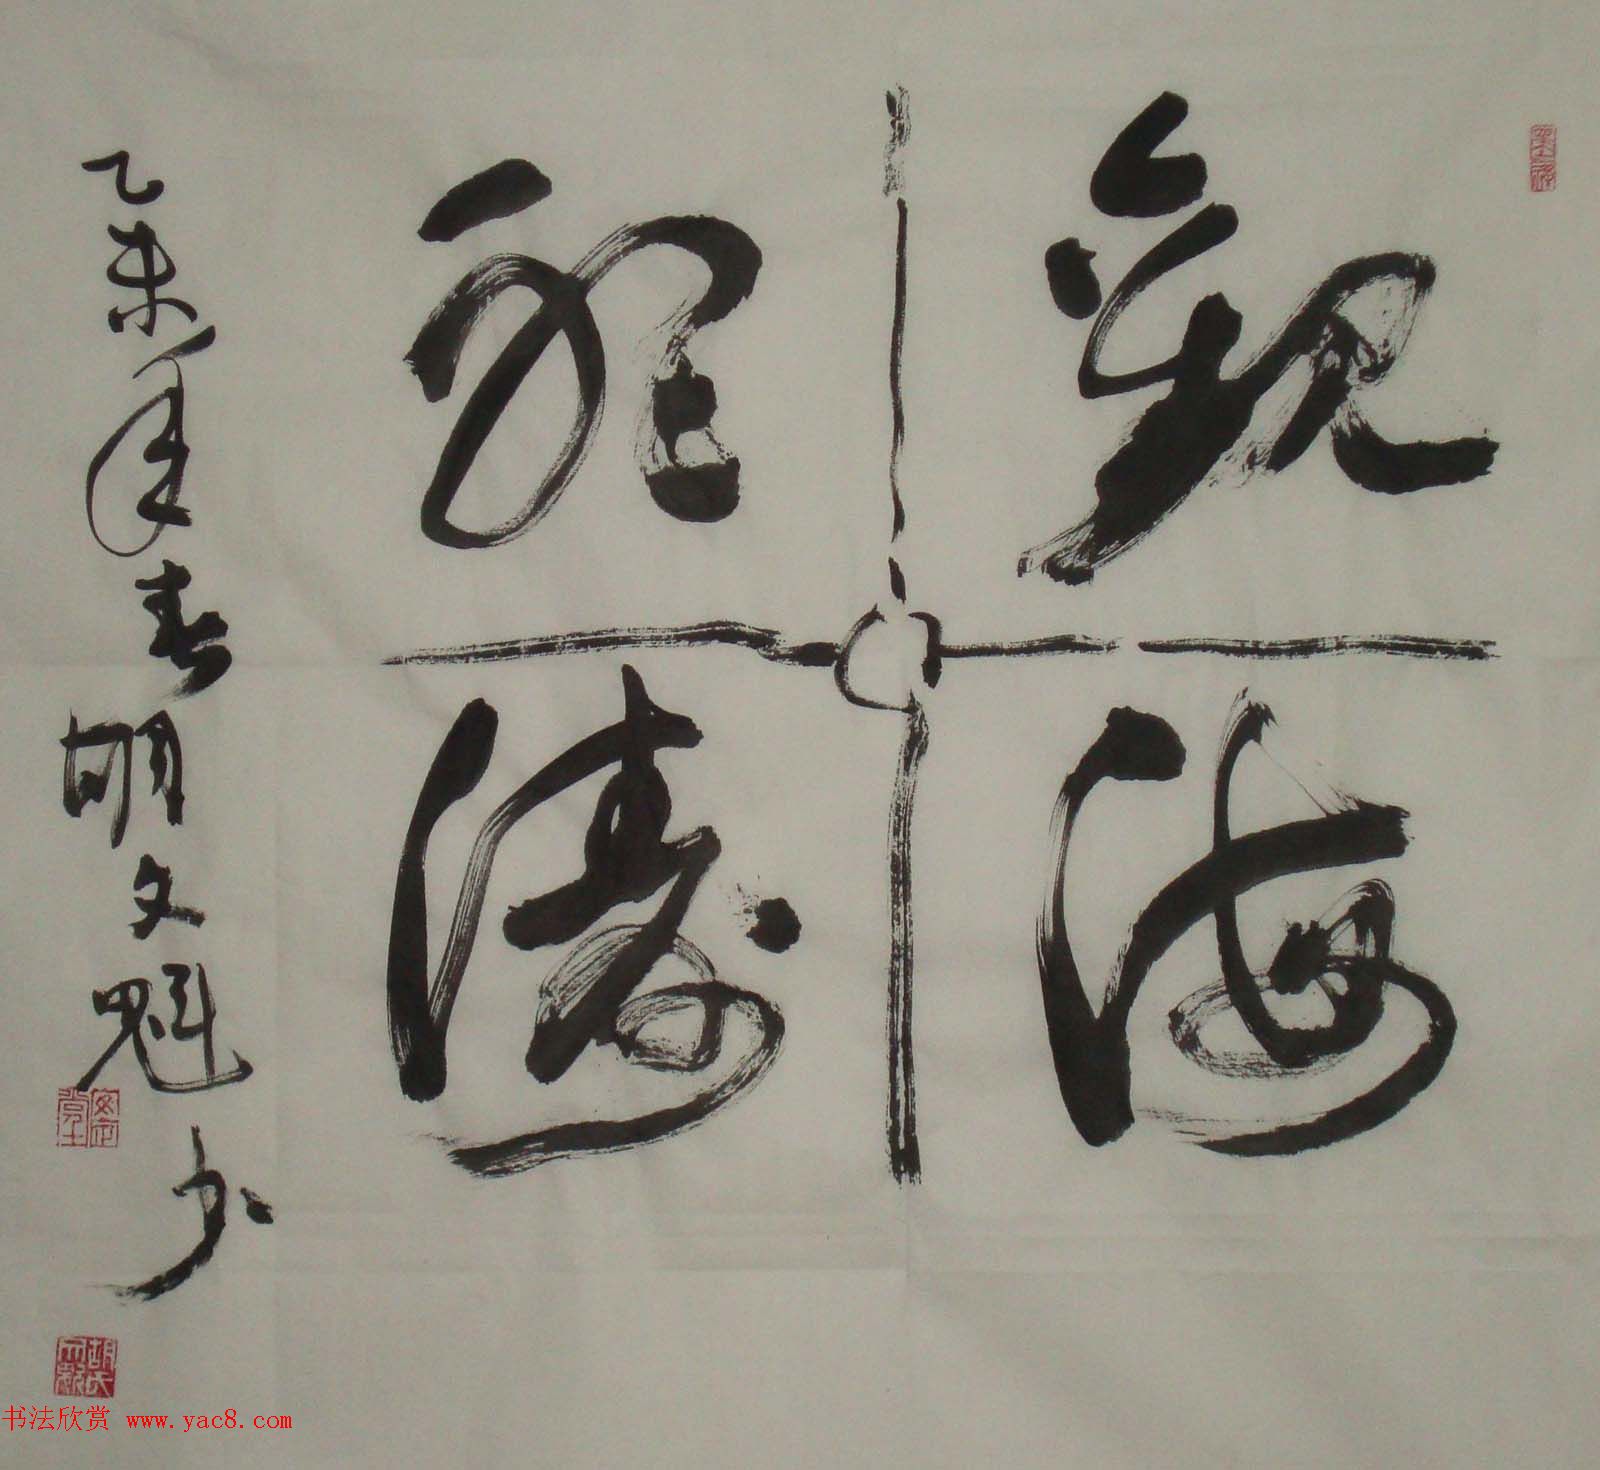 觀海
聽濤
乙未年春胡文魁书
书法欣赏 www.yac8.com